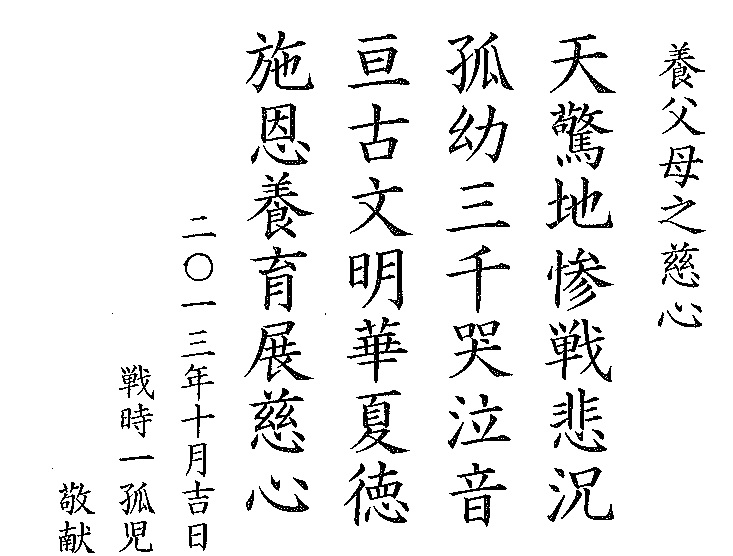 養父母之慈心
天驚地惨戦悲況
孤幼三千哭泣音
亘古文明華夏徳
施恩養育展慈心
二〇一三年十月吉日
戦時一孤児
敬献